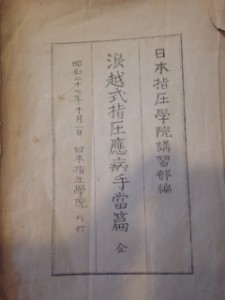 日本指圧學院講習部編
浪越式指圧應病手當篇 全
昭和二十七年十月一日 日本指圧學院